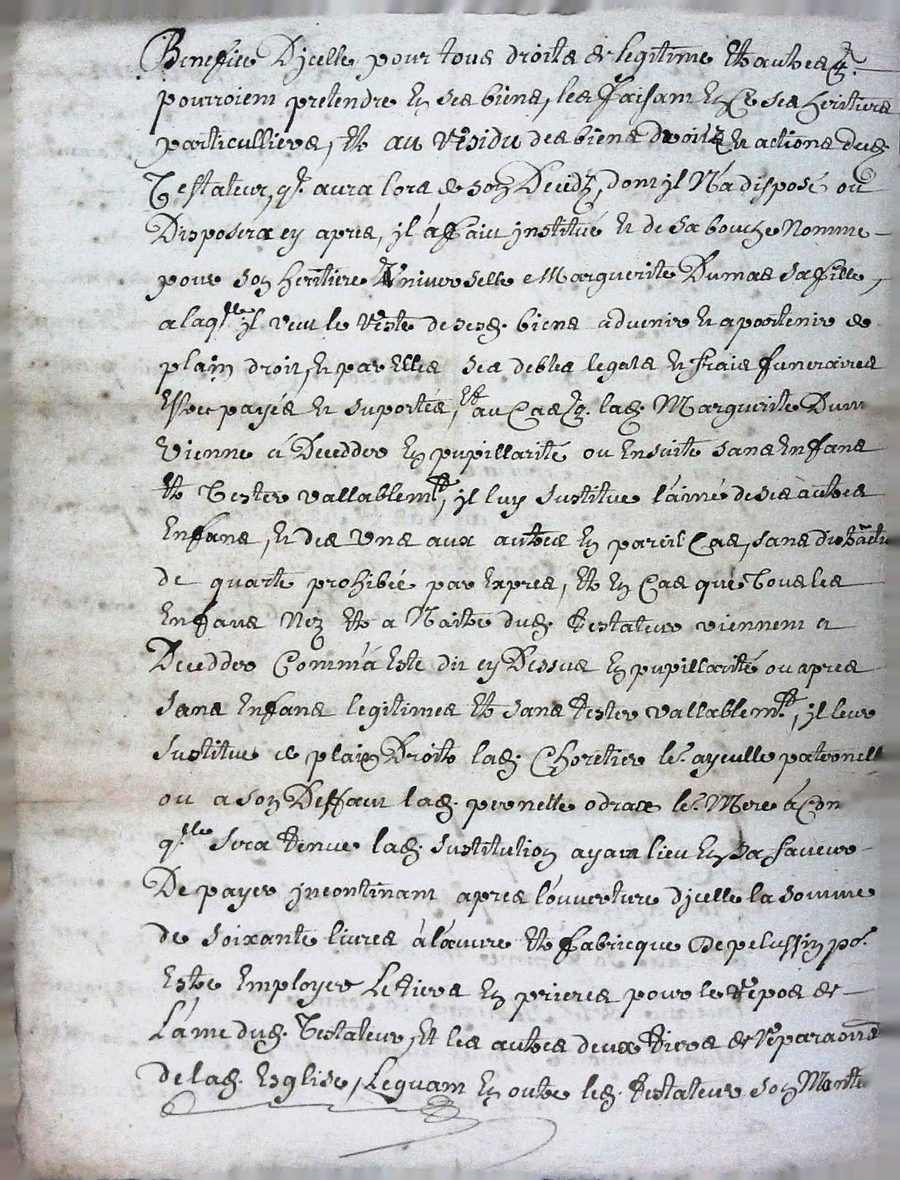 Benefice D'jcelle pour tous droits de legitime Et autres q.
pourroient pretendre En ses biens, les faisant En Ce ses heritiers
particulliers, Et au Residu des biens droits Et actions dud.
Testateur, q. aura lors de son Decedz, dont jl N'a disposé ou
Disposera cy apres, jl a faict jnstitué Et de sa bouche Nomme
pour son heritiere Vniverselle Marguerite Dumas sa fille,
a laq.lle jl veut le Reste de sesd. biens advenir Et apartenir de
plain droit, Et par Elle ses debtes legats Et frais funeraires
Estre payés Et suportés, Et au Cas q. lad. Marguerite Dum
vienne á Decedder En pupillarité ou Ensuite sans Enfans
Et Tester vallablem.t, jl luy sustitue l'ainé de ses autres
Enfans, Et des Vns aux autres En pareil Cas, sans distractio
de quarte prohibée par Expres, Et En Cas que Tous les
Enfans Néz Et a Naitre dud. Testateur viennent a
Decedder Comm'a Esté dit cy Dessus En pupillarité ou apres
sans Enfans legitimes Et sans Tester vallablem.t, jl leur
sustitue de plain Droit lad. Choretier le.r ayeulle paternell
ou a son Deffaut lad. peronelle odras le.r Mere á Con
q.lle sera Tenue lad. sustitution ayant lieu En sa faveur
De payer jncontinant apres l'ouverture d'jcelle la somme
de soixante livres à l'œuvre Et fabricque de pelussin p.r
Estre Employer Le tiers En prieres pour le Repos de
L'ame dud. Testateur, Et les autres deux Tiers de Reparaõns
de lad. Esglise, Leguant En outre led. Testateur son Mante